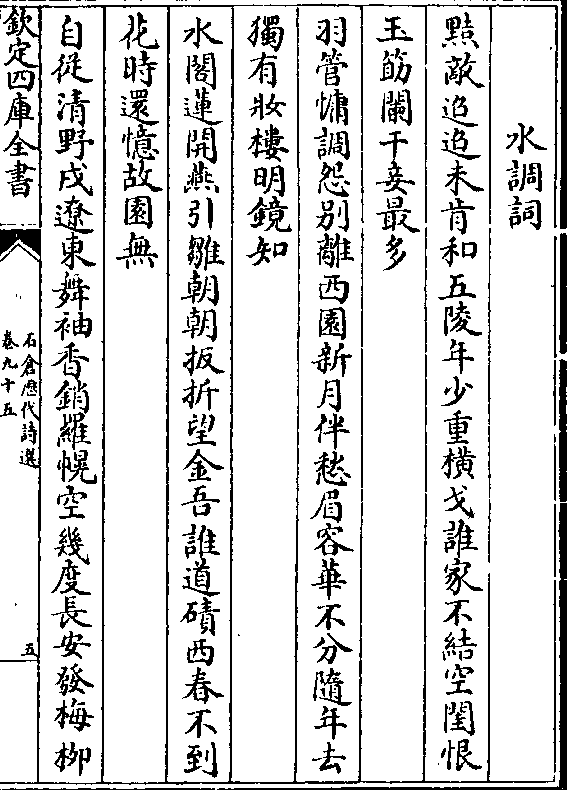 水調詞
黠敵迢迢未肯和五陵年少重橫戈誰家不結空閨恨
玉筯闌干妾最多
羽管慵調怨别離西園新月伴愁眉容華不分隨年去
獨有妝樓明鏡知
水閣蓮開燕引雛朝朝扳折望金吾誰道磧西春不到
花時還憶故園無
自從清野戍遼東舞袖香銷羅幌空幾度長安發梅柳
欽定四庫全書
石倉歷代詩選
卷九十五
五